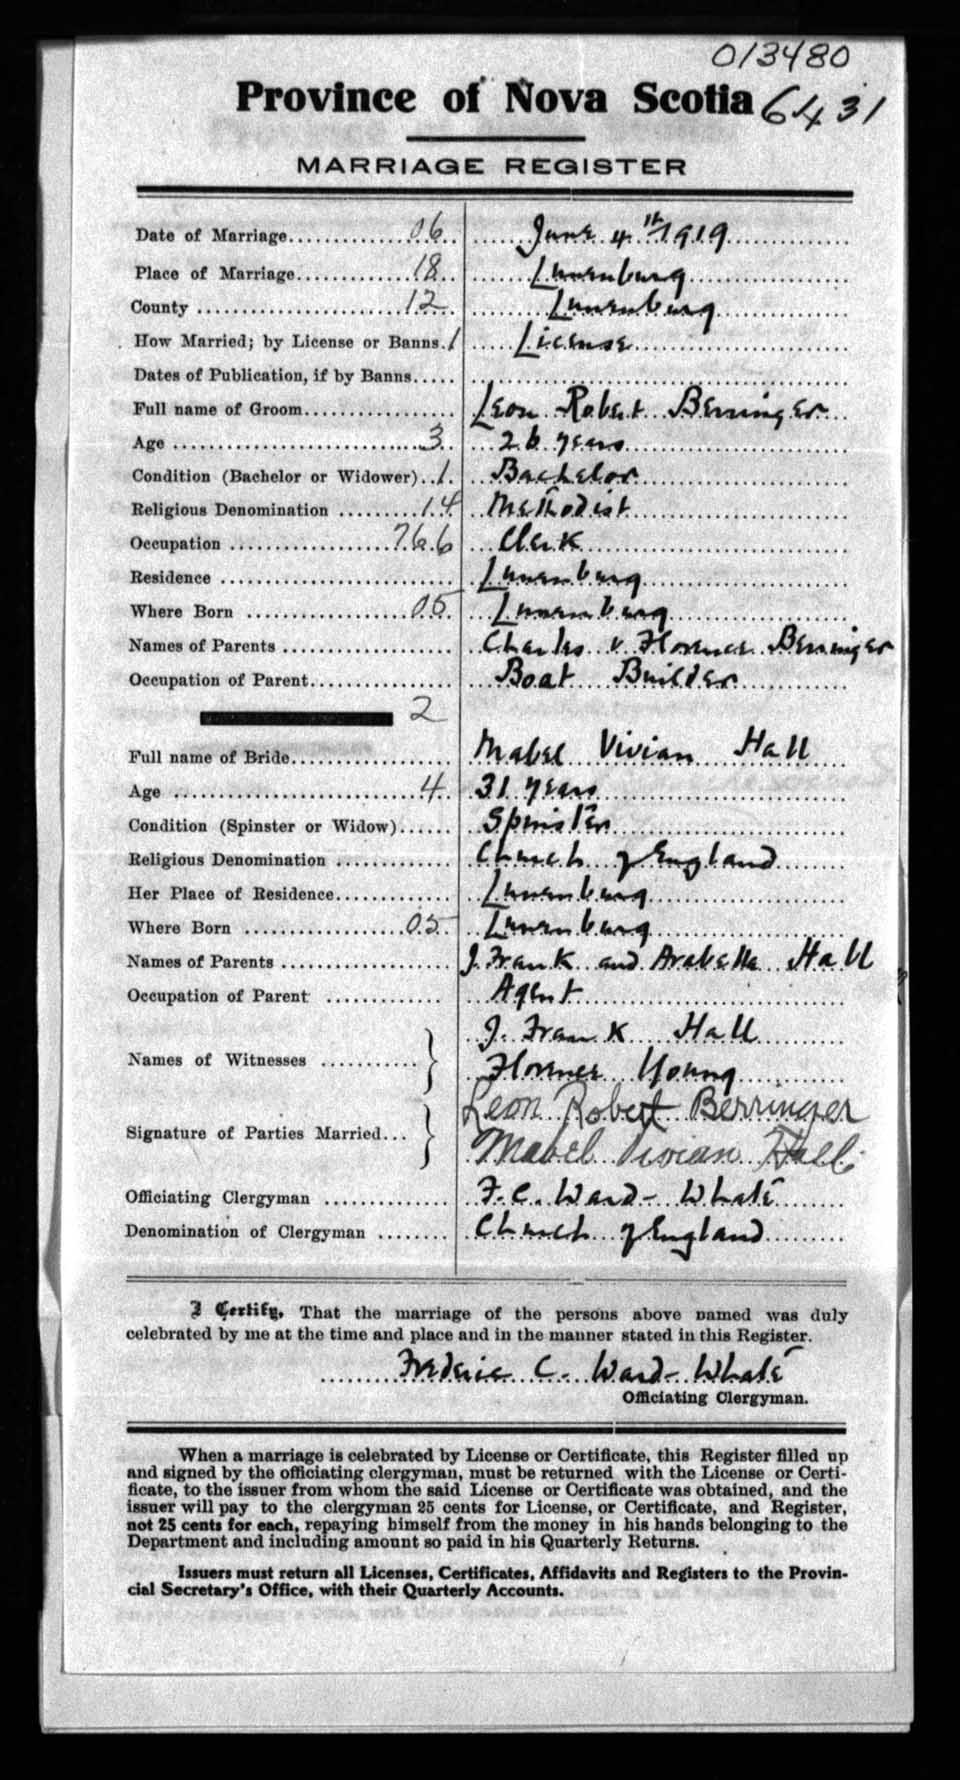 013480
Province of Nova Scotia 6431
MARRIAGE REGISTER
Date of Marriage 06 June 4th 1919
Place of Marriage 18 Lunenburg
County 12 Lunenburg
How Married; by License or Banns 1 License
Dates of Publication, if by Banns
Full name of Groom Leon Robert Berringer
Age 3 26 years
Condition (Bachelor or Widower) 1 Bachelor
Religious Denomination 14 Methodist
Occupation 766 Clerk
Residence Lunenburg
Where Born 05 Lunenburg
Names of Parents Charles v Florence Berringer
Occupation of Parent Boat Builder
2
Full name of Bride Mabel Vivian Hall
Age 4 31 years
Condition (Spinster or Widow) Spinster
Religious Denomination Church of England
Her Place of Residence Lunenburg
Where Born 05 Lunenburg
Names of Parents J. Frank and Arabella Hall
Occupation of Parent Agent
Names of Witnesses J. Frank Hall
Florence Young
Signature of Parties Married Leon Robert Berringer
Mabel Vivian Hall
Officiating Clergyman F. C. Ward-Whate
Denomination of Clergyman Church of England
I Certify, That the marriage of the persons above named was duly
celebrated by me at the time and place and in the manner stated in this Register.
Frederic C. Ward-Whate
Officiating Clergyman.
When a marriage is celebrated by License or Certificate, this Register filled up
and signed by the officiating clergyman, must be returned with the License or Certi-
ficate, to the issuer from whom the said License or Certificate was obtained, and the
issuer will pay to the clergyman 25 cents for License, or Certificate, and Register,
not 25 cents for each, repaying himself from the money in his hands belonging to the
Department and including amount so paid in his Quarterly Returns.
Issuers must return all Licenses, Certificates, Affidavits and Registers to the Provin-
cial Secretary's Office, with their Quarterly Accounts.